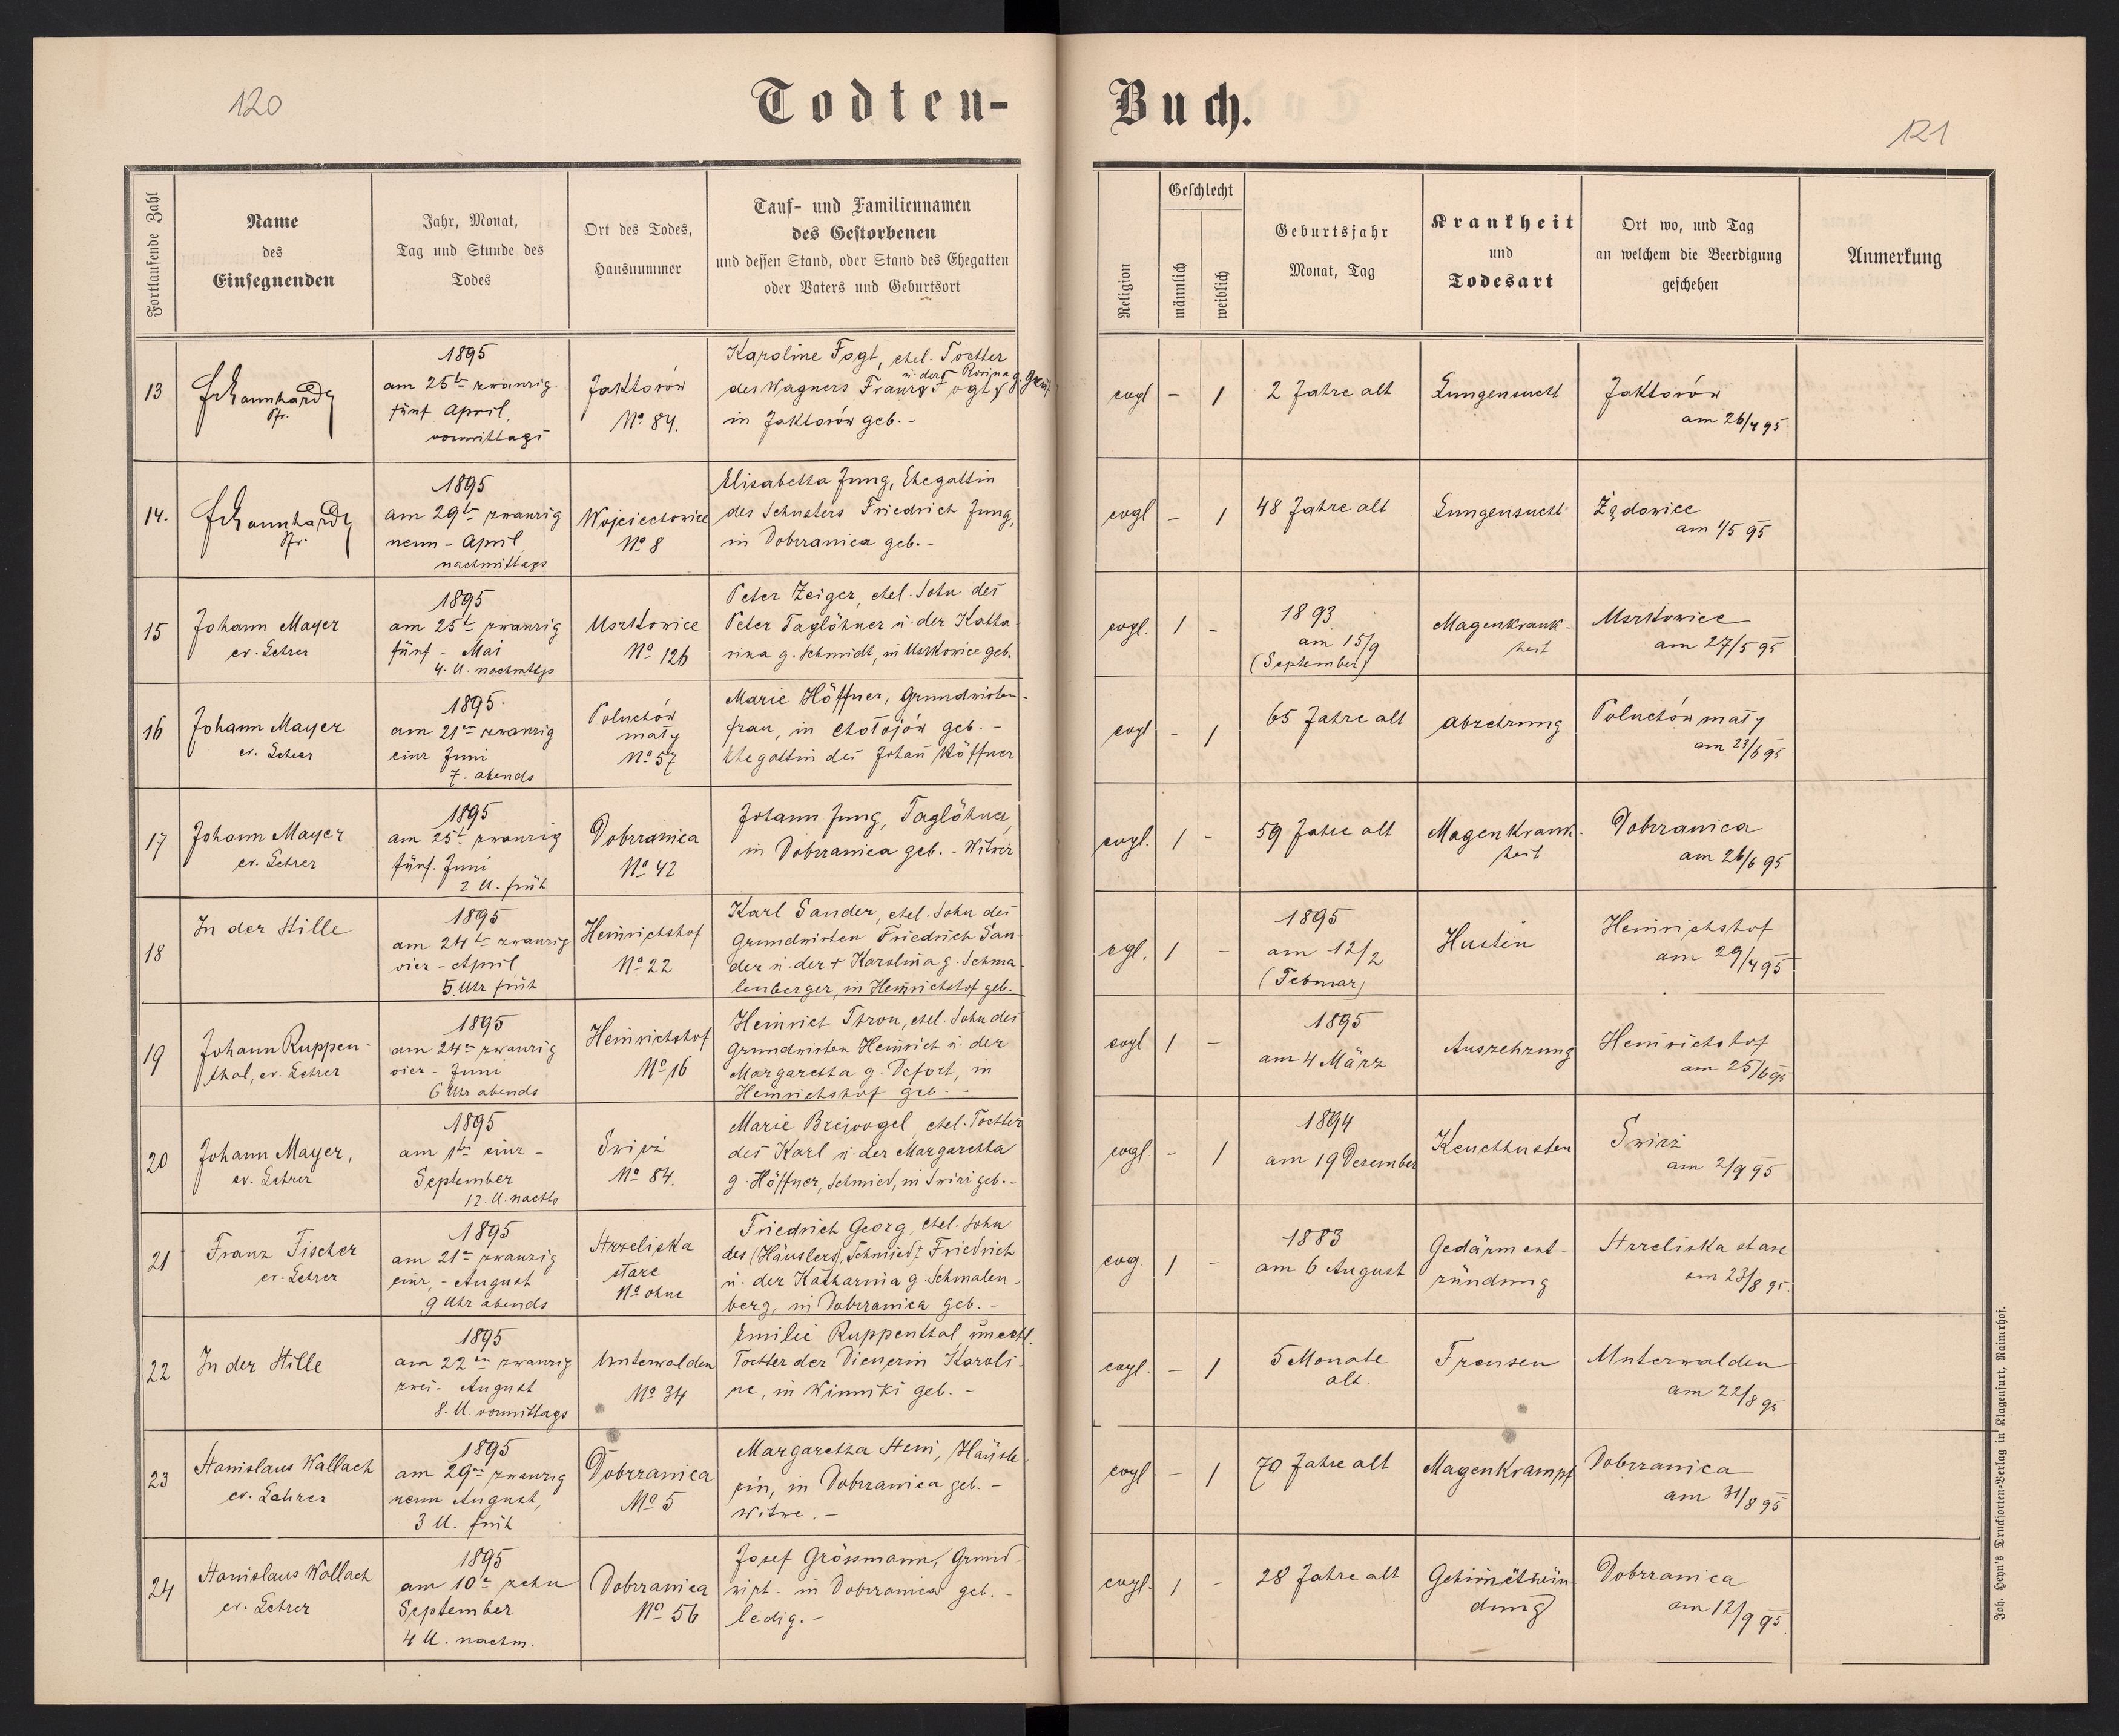 120
Todten-
Buch.
121
Fortlaufende Zahl
Name
des
Einsegnenden
Jahr, Monat,
Tag und Stunde des
Todes
Ort des Todes,
Hausnummer
Tauf- und Familiennamen
des Gestorbenen
und dessen Stand, oder Stand des Ehegatten
oder Vaters und Geburtsort
Religion
Geschlecht
männlich
weiblich
Geburtsjahr
Monat, Tag
Krankheit
und
Todesart
Ort wo, und Tag
an welchem die Beerdigung
geschehen
Anmerkung
13
Pfr.
1895
am 25te zwanzig
fünf April,
vormittags
Jaktorów
No 84.
Karoline Fogt, ehel. Tochter
u. der Rosina g.
des Wagners Franz Fogt
in Jaktorów geb. -
evgl
-
1
2 Jahre alt
Lungensucht
Jaktorów
am 26/4 95
14.
Pfr.
1895
am 29te zwanzig
neun - April
nachmittags
Wojciechowice
No 8
Elisabetha Jung, Ehegattin
des Schusters Friedrich Jung,
in Dobrzanica geb. -
evgl
-
1
48 Jahre alt
Lungensucht
Żędowice
am 1/5 95
15
Johann Mayer
ev. Lehrer
1895
am 25te zwanzig
fünf - Mai
4. U. nachmttgs
Uszkowice
No 126
Peter Zeiger, ehel. Sohn des
Peter Taglöhner u. der Katha-
rina g. Schmidt, in Uszkowice geb.
evgl.
1
-
1893
am 15/9
(September)
Magenkrank-
heit
Uszkowice
am 27/5 95
16
Johann Mayer
ev. Lehrer
1895
am 21en zwanzig
einz Juni
7. abends
Poluchów
mały
No 57
Marie Höffner, Grundwirten-
frau, in Chołojów geb. -
Ehegattin des Johan̄ Höffner
evgl
-
1
65 Jahre alt
Abzehrung
Poluchów mały
am 23/6 95
17
Johann Mayer
ev. Lehrer
1895
am 25te zwanzig
fünf. Juni
2 U. früh
Dobrzanica
No 42
Johann Jung, Taglöhner,
in Dobrzanica geb. - Witwer
evgl.
1
-
59 Jahre alt
Magenkrank-
heit
Dobrzanica
am 26/6 95
18
In der Stille
1895
am 24te zwanzig
vier - April
5. Uhr früh
Heinrichshof
No 22
Karl Sander, ehel. Sohn des
Grundwirten Friedrich San-
der u. der + Karolina g. Schma-
lenberger, in Heinrichshof geb.
egl.
1
-
1895
am 12/2
(Februar)
Husten
Heinrichshof
am 29/4 95
19
Johann Ruppen-
thal, ev. Lehrer
1895
am 24en zwanzig
vier - Juni
6 Uhr abends
Heinrichshof
No 16
Heinrich Thron, ehel. Sohn des
Grundwirten Heinrich u. der
Margaretha g. Defort, in
Heinrichshof geb. -
evgl
1
-
1895
am 4 März
Auszehrung
Heinrichshof
am 25/6 95
20
Johann Mayer,
ev. Lehrer
1895
am 1te einz -
September
12. U. nachts
Swirż
No 84.
Marie Breivogel, ehel. Tochter
des Karl u. der Margaretha
g. Höffner, Schmied, in Swirz geb. -
evgl.
-
1
1894
am 19 Dezember
Keuchhusten
Swirz
am 2/9 95
21
Franz Fischer
ev. Lehrer
1895
am 21en zwanzig
einz, - August
9 Uhr abends
Strzeliska
stare
No ohne
Friedrich Georg, ehel. Sohn
des (Häuslers), Schmied, Friedrich
u. der Katharina g. Schmalen-
berg, in Dobrzanica geb. -
evg.
1
-
1883
am 6 August
Gedärment-
zündung
Strzeliska stare
am 23/8 95.
22
In der Stille
1895
am 22en zwanzig
zwei - August
8. U. vormittags
Unterwalden
No 34
Emilie Ruppenthal unechl.
Tochter der Dienerin Karoli-
ne, in Winniki geb. -
evgl.
-
1
5 Monate
alt.
Freusen
Unterwalden
am 22/8 95
23
Stanislaus Wallach
ev. Lehrer
1895
am 29en zwanzig
neun August,
3 U. früh
Dobrzanica
No 5
Margaretha Heni, Häusle-
rin, in Dobrzanica geb. -
Witwe. -
evgl.
-
1
70 Jahre alt
Magenkrampf
Dobrzanica
am 31/8 95
24
Stanislaus Wallach
ev. Lehrer
1895
am 10te zehn
September
4 U. nachm.
Dobrzanica
No 56
Josef Grössmann, Grund-
wirt - in Dobrzanica geb. -
ledig. -
evgl.
1
-
28 Jahre alt
Dobrzanica
am 12/9 95
Joh. Heyn's Drucksorten-Verlag in Klagenfurt, Rainerhof.